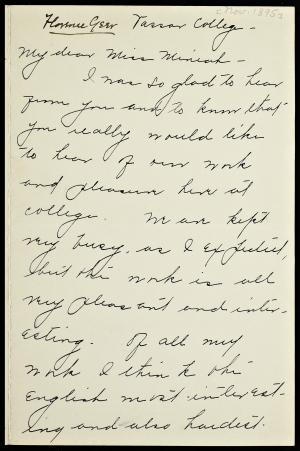 Florence Geer Vassar College -
c Nov. 1895?
My dear Miss Mineah -
I was so glad to hear
from you and to know that
you really would like
to hear of our work
and pleasure here at
college. We are kept
very busy, as I expected,
but the work is all
very pleasant and inter-
esting. Of all my
work I think the
English most interest-
ing and also hardest.